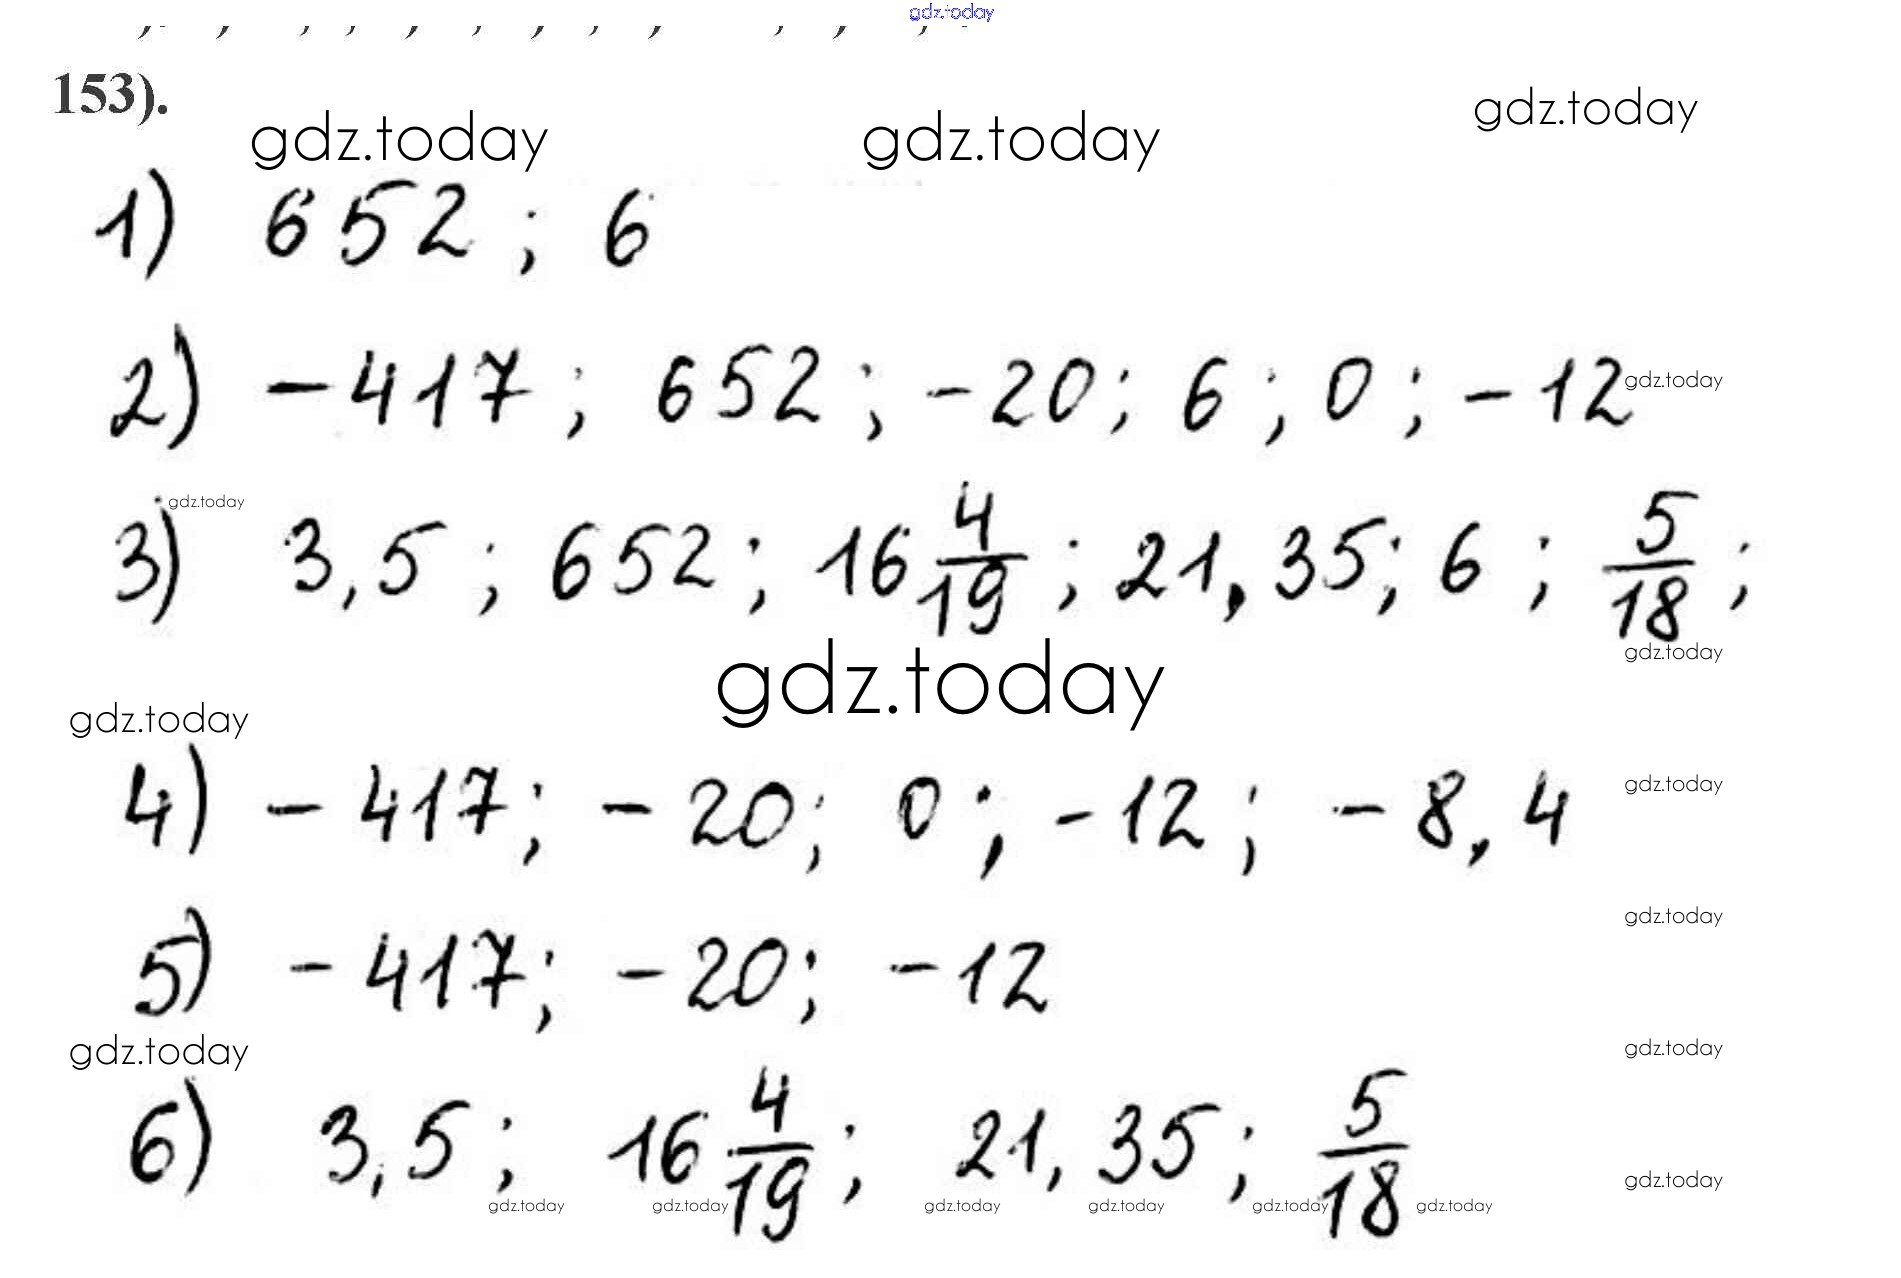 gdz.today
153).
gdz.today gdz.today gdz.today
1) 652; 6
2) -417; 652; -20; 6; 0; -12 gdz.today
gdz.today
3) 3,5; 652; 16 4/19; 21,35; 6; 5/18;
gdz.today
gdz.today
gdz.today
4) -417; -20; 0; -12; -8,4 gdz.today
gdz.today
5) -417; -20; -12
gdz.today gdz.today
6) 3,5; 16 4/19; 21,35; 5/18
gdz.today
gdz.today gdz.today gdz.today gdz.today gdz.today gdz.today